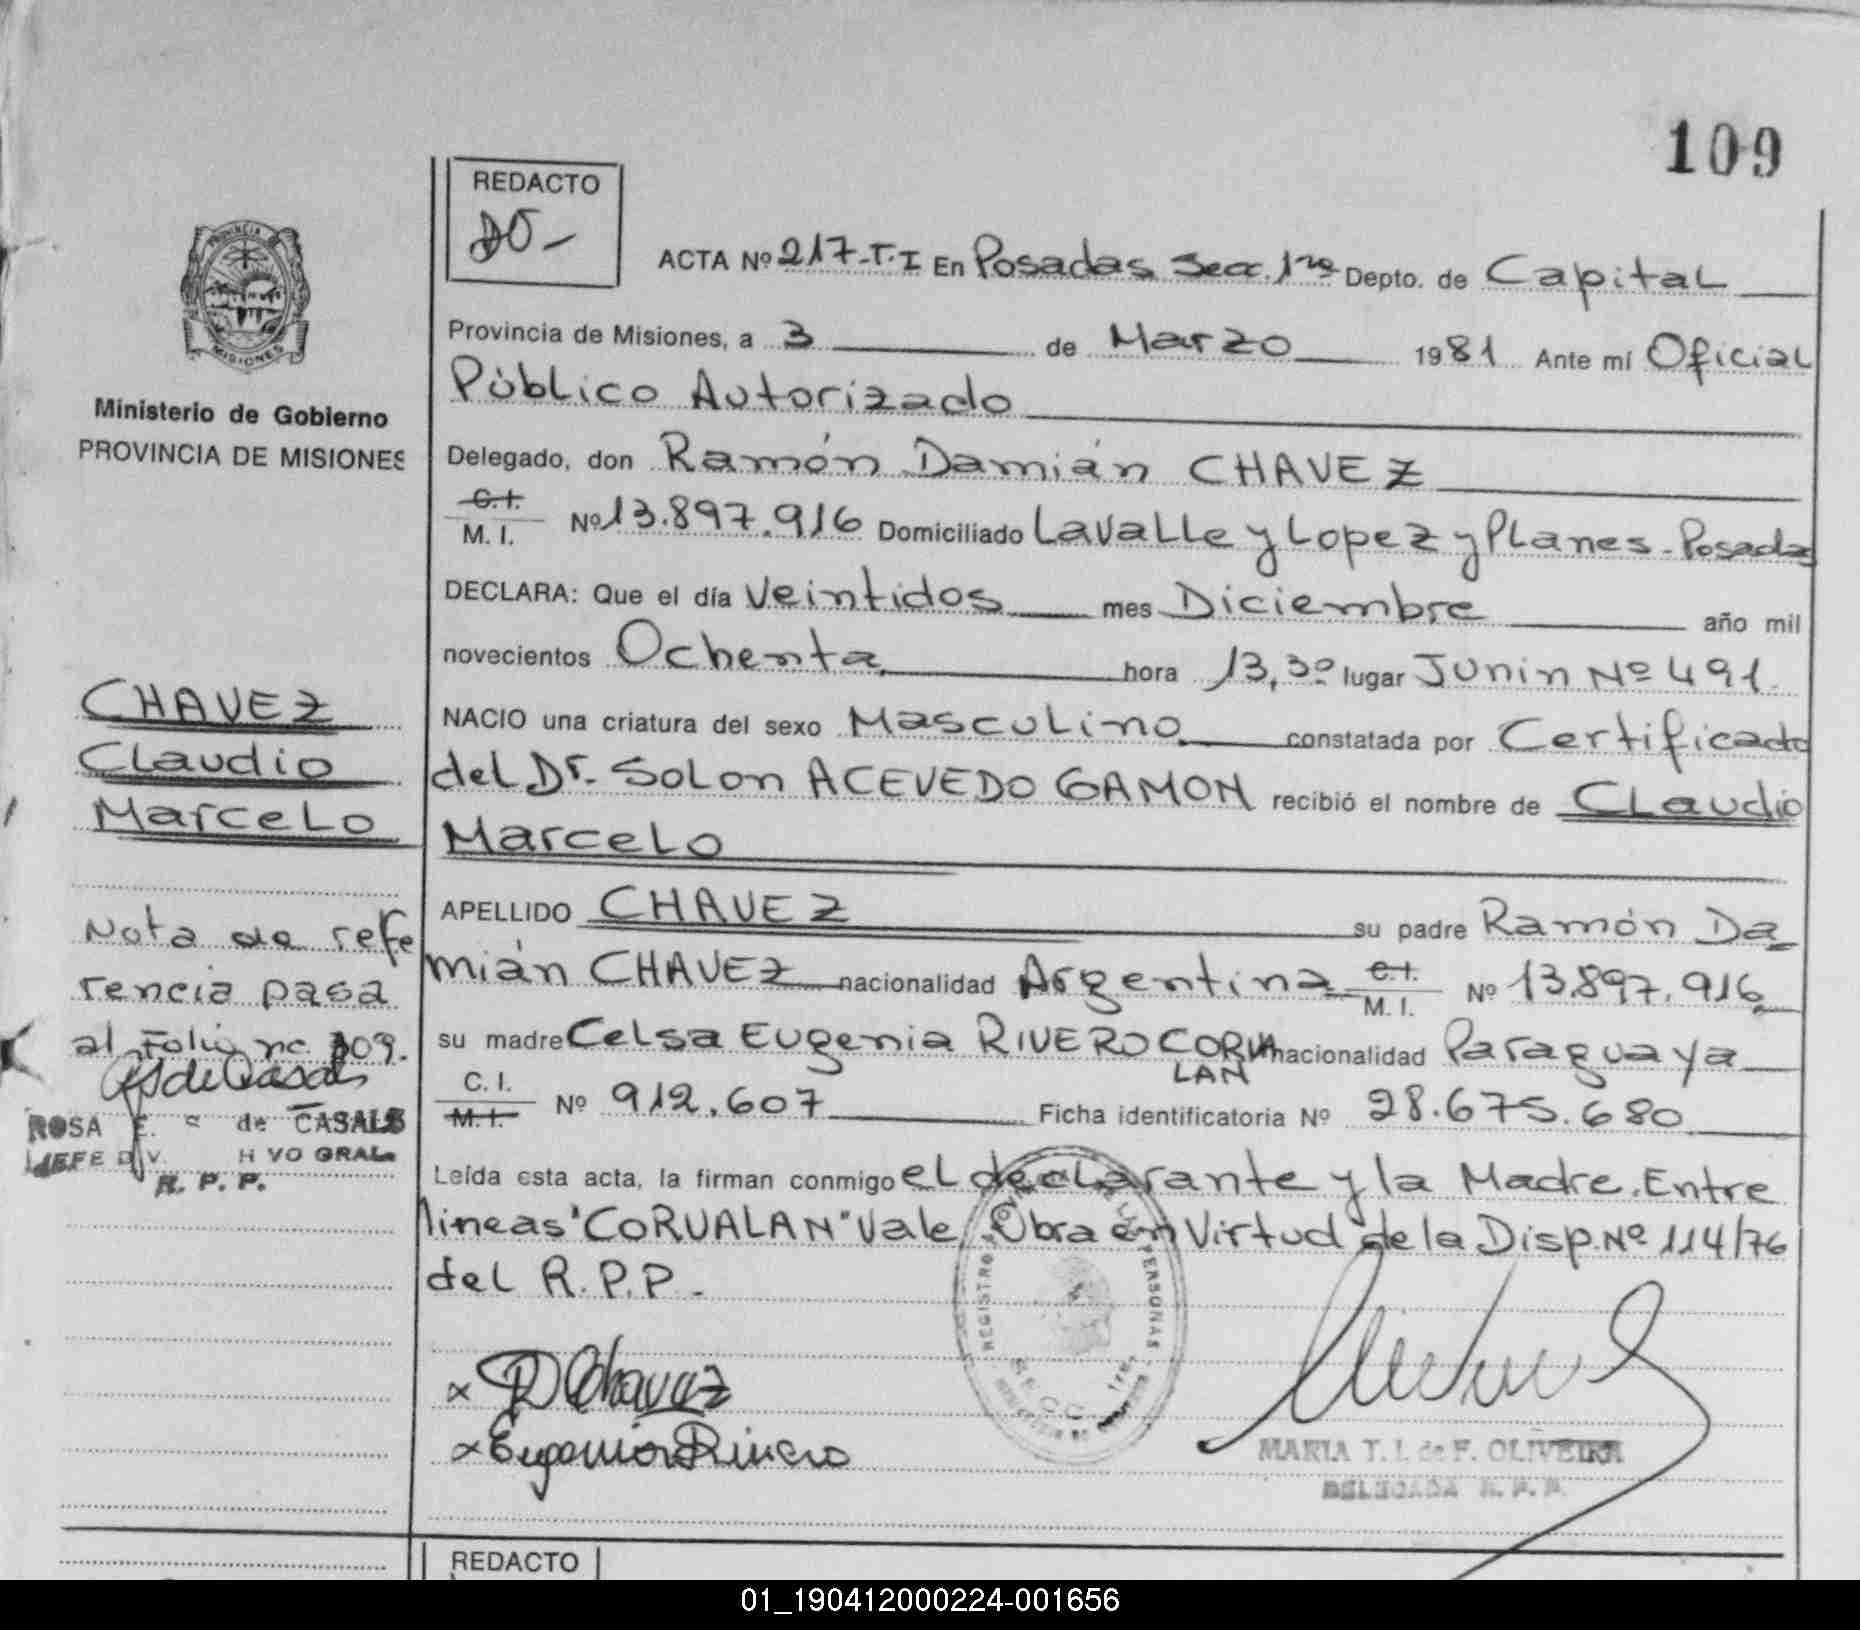 109
REDACTO
ACTA Nº 217-T.I En Posadas Secc. 1ra Depto. de Capital
Provincia de Misiones, a 3 de Marzo 1981 Ante mí Oficial
Público Autorizado
Ministerio de Gobierno
PROVINCIA DE MISIONES
Delegado, don Ramón Damián CHAVEZ
C.I.
M. I. Nº 13.897.916 Domiciliado Lavalle y Lopez y Planes - Posadas
DECLARA: Que el día Veintidos mes Diciembre año mil
novecientos Ochenta hora 13,30 lugar Junin Nº 491.
NACIO una criatura del sexo Masculino constatada por Certificado
del Dr. Solon ACEVEDO GAMON recibió el nombre de Claudio
Marcelo
CHAVEZ
Claudio
Marcelo
APELLIDO CHAVEZ su padre Ramón Da-
mián CHAVEZ nacionalidad Argentina C.I.
M. I. Nº 13.897.916
su madre Celsa Eugenia RIVERO CORVA
LAN nacionalidad Paraguaya
C. I.
M. I. Nº 912.607 Ficha identificatoria Nº 28.675.680
Nota de refe
rencia pasa
al Folio nº 109.
ROSA E. de CASALS
JEFE DIV. GRAL.
R. P. P.
Leída esta acta, la firman conmigo el declarante y la Madre. Entre
lineas "CORVALAN" Vale. Obra en Virtud de la Disp. Nº 114/76
del R.P.P.-
REGISTRO PERSONAS
SECC. 1ra.
x R Chavez
x Eugenia Rivero
MARIA T. I. de F. OLIVEIRA
DELEGADA R. P. P.
REDACTO
01_190412000224-001656